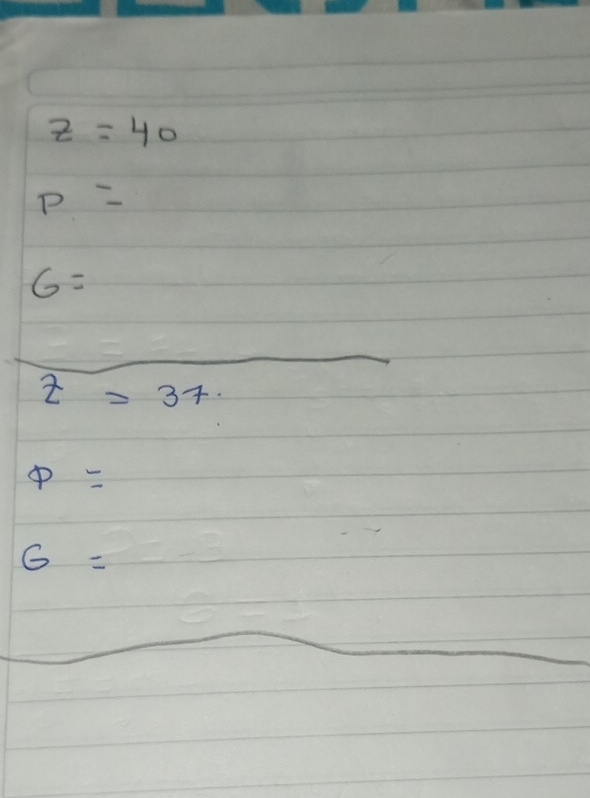 Z = 40
P =
G =
Z = 37.
P =
G =